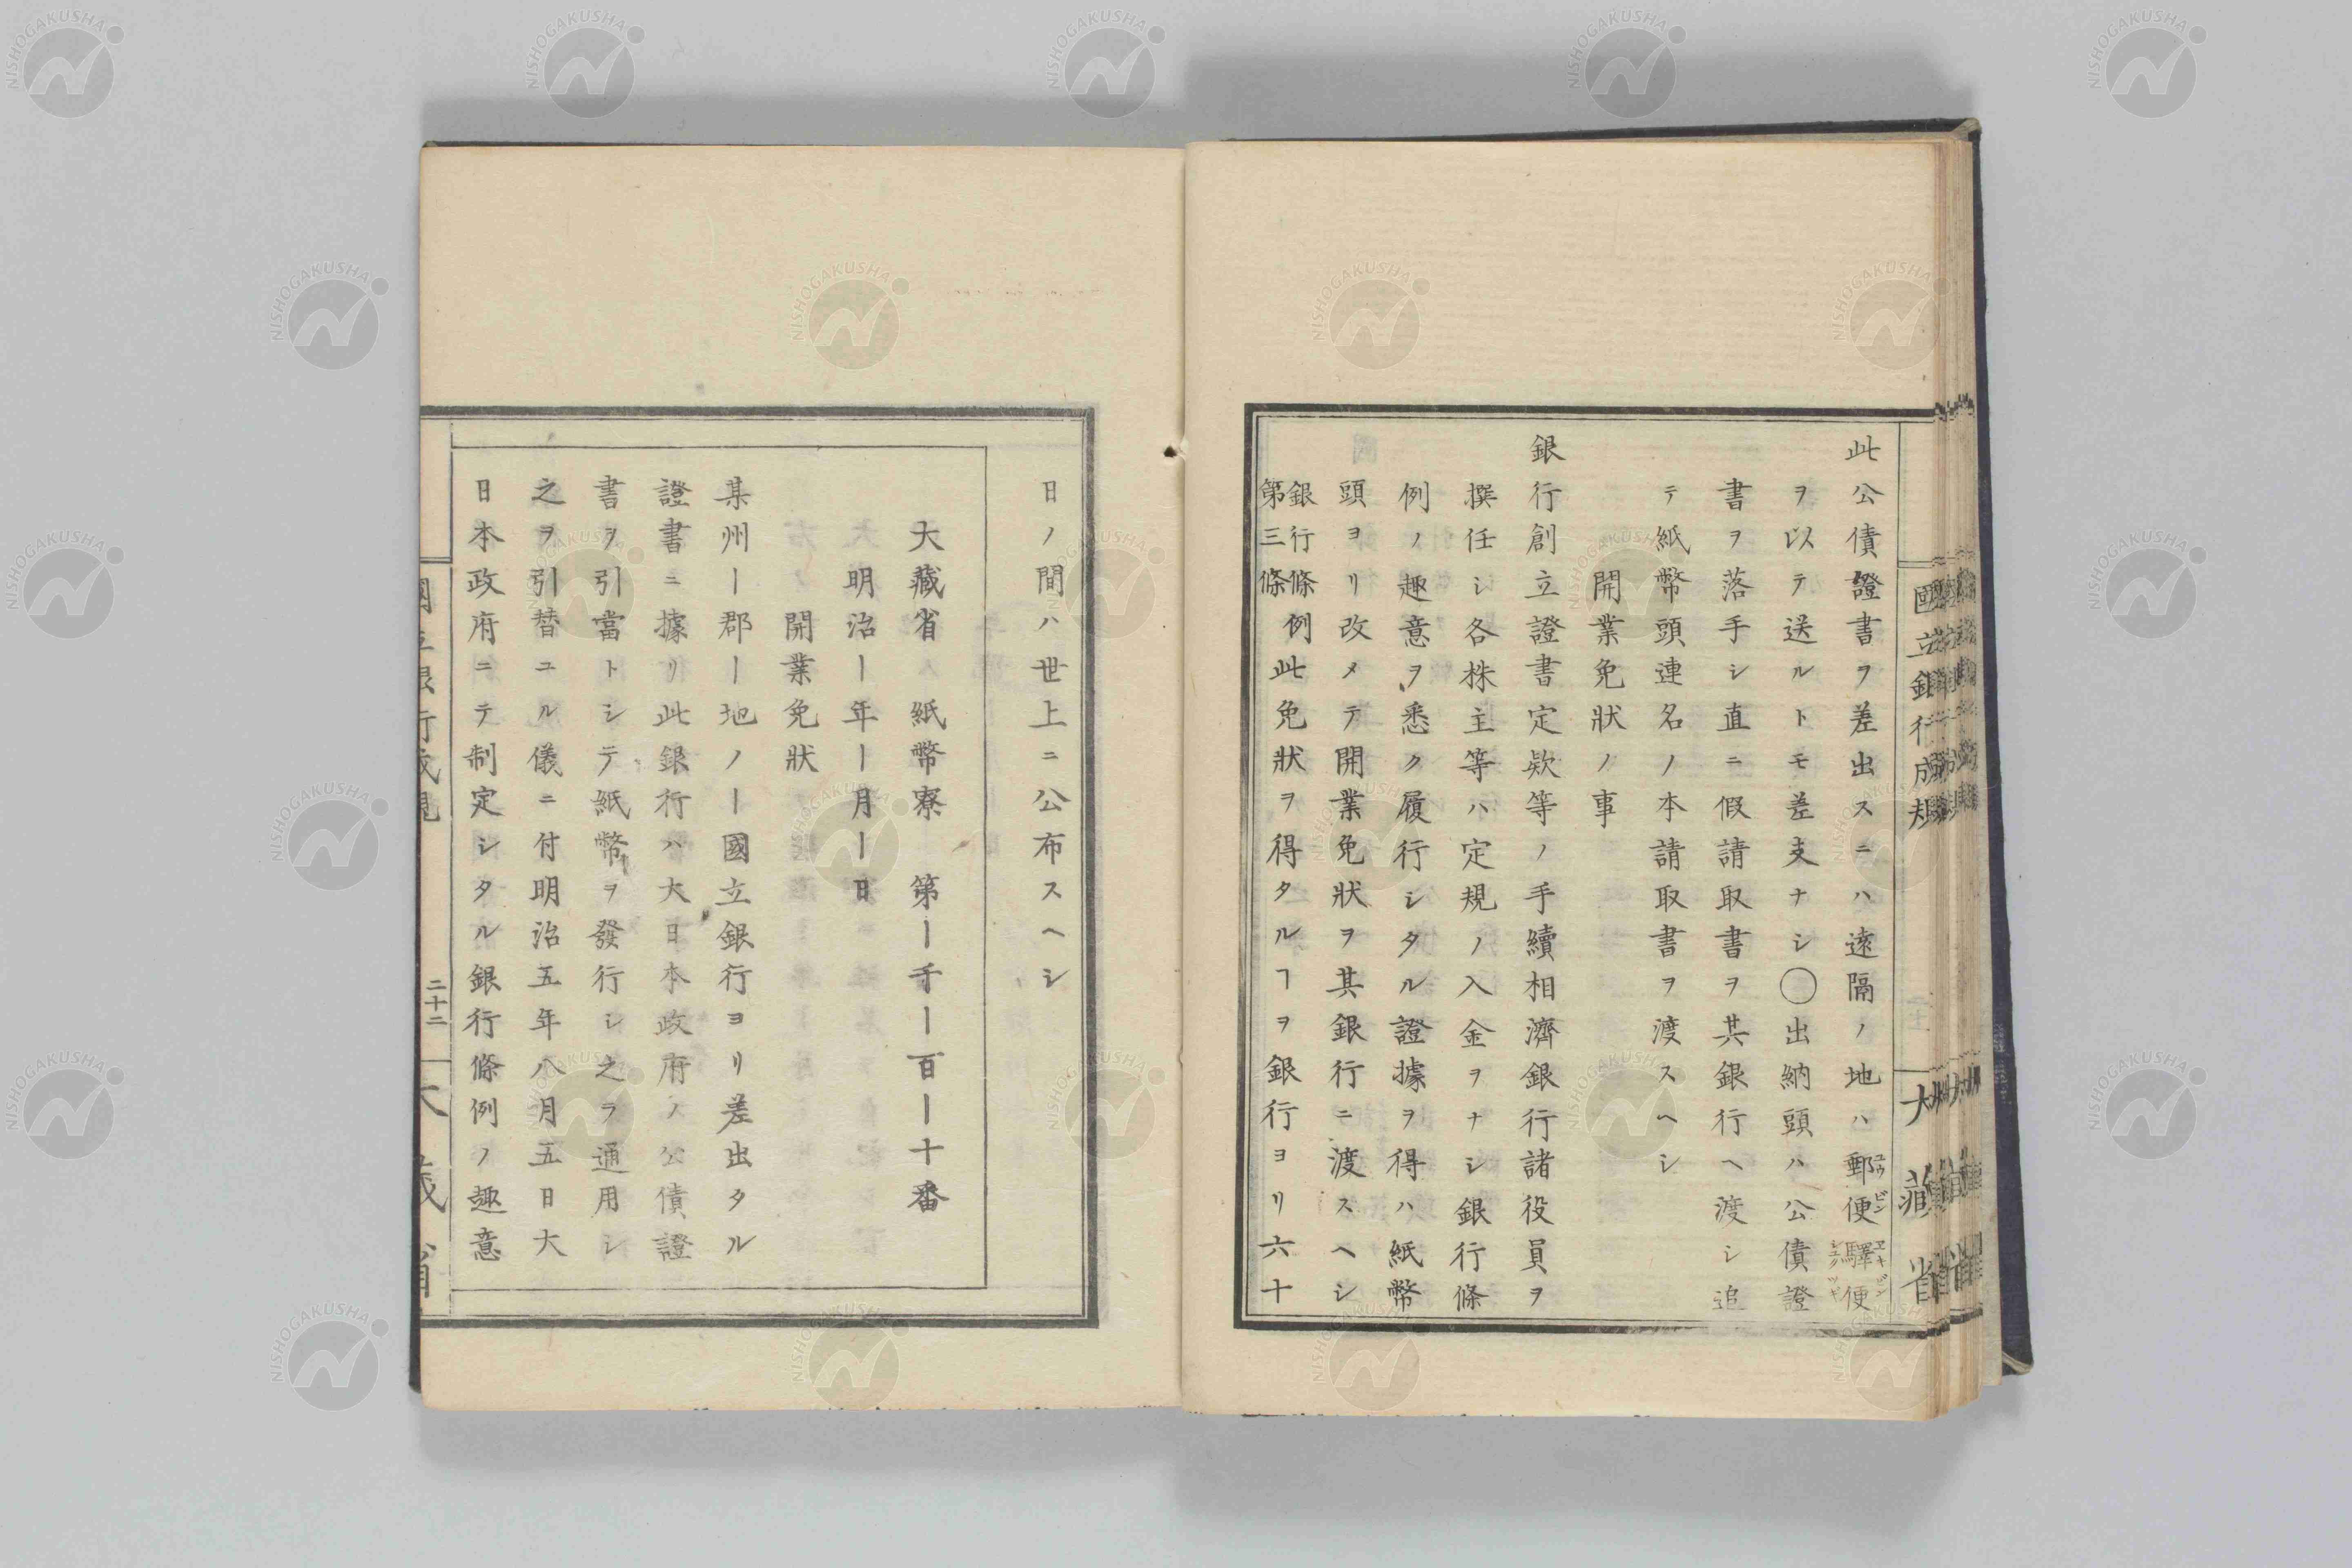 國立銀行成規
大藏省
此公債證書ヲ差出スニハ遠隔ノ地ハ郵便驛便
ユウビン
ヱキビン
ヲ以テ送ルトモ差支ナシ◯出納頭ハ公債證
書ヲ落手シ直ニ假請取書ヲ其銀行ヘ渡シ追
テ紙幣頭連名ノ本請取書ヲ渡スヘシ
開業免狀ノ事
銀行創立證書定款等ノ手續相濟銀行諸役員ヲ
撰任シ各株主等ハ定規ノ入金ヲナシ銀行條
例ノ趣意ヲ悉ク履行シタル證據ヲ得ハ紙幣
頭ヨリ改メテ開業免狀ヲ其銀行ニ渡スヘシ
銀行條例
第三條
此免狀ヲ得タルヿヲ銀行ヨリ六十
日ノ間ハ世上ニ公布スヘシ
大藏省 紙幣寮 第ー千ー百ー十番
明治ー年ー月ー日
開業免狀
某州ー郡ー地ノー國立銀行ヨリ差出タル
證書ニ據リ此銀行ハ大日本政府ノ公債證
書ヲ引當トシテ紙幣ヲ發行シ之ヲ通用シ
之ヲ引替ユル儀ニ付明治五年八月五日大
日本政府ニテ制定シタル銀行條例ノ趣意
國立銀行成規
二十二
大藏省
NISHOGAKUSHA